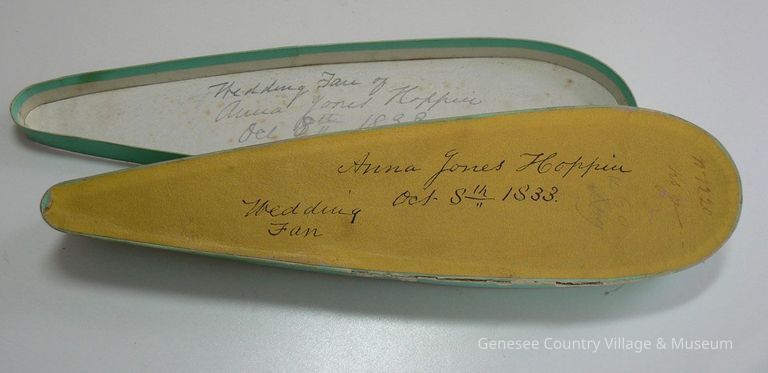 Wedding Fan of
Anna Jones Hoppin
Oct 8th 1833
Anna Jones Hoppin
Oct 8th 1833.
Wedding
Fan
Genesee Country Village & Museum